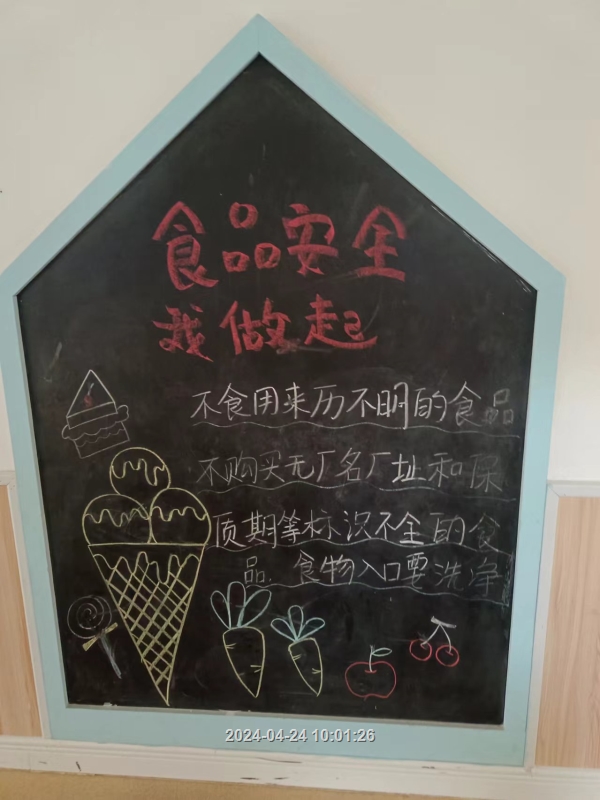 食品安全
我做起
不食用来历不明的食品
不购买无厂名厂址和保
质期等标识不全的食
品.食物入口要洗净
2024-04-24 10:01:26